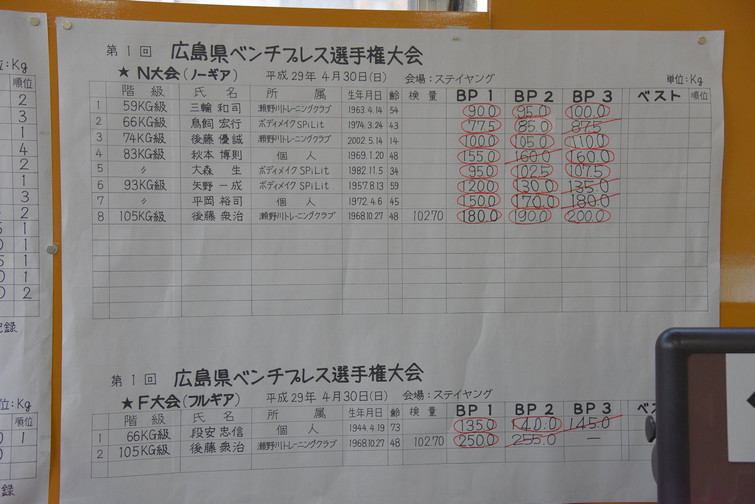 第1回 広島県ベンチプレス選手権大会
★ N大会(ノーギア) 平成29年4月30日(日) 会場:ステイヤング 単位:Kg
階級 氏名 所属 生年月日 齢 検量 BP 1 BP 2 BP 3 ベスト 順位
1 59KG級 三輪 和司 瀬野川トレーニングクラブ 1963.4.14 54 90.0 95.0 100.0
2 66KG級 鳥飼 宏行 ボディメイクSPiLit 1974.3.24 43 77.5 85.0 87.5
3 74KG級 後藤 優誠 瀬野川トレーニングクラブ 2002.5.14 14 100.0 105.0 110.0
4 83KG級 秋本 博則 個人 1969.1.20 48 155.0 160.0 160.0
5 〃 大森 生 ボディメイクSPiLit 1982.11.5 34 95.0 102.5 107.5
6 93KG級 矢野 一成 ボディメイクSPiLit 1957.8.13 59 120.0 130.0 135.0
7 〃 平岡 裕司 個人 1972.4.6 45 150.0 170.0 180.0
8 105KG級 後藤 衆治 瀬野川トレーニングクラブ 1968.10.27 48 102.70 180.0 190.0 200.0
第1回 広島県ベンチプレス選手権大会
★F大会(フルギア) 平成29年4月30日(日) 会場:ステイヤング
階級 氏名 所属 生年月日 齢 検量 BP 1 BP 2 BP 3
1 66KG級 段安 忠信 個人 1944.4.19 73 135.0 140.0 145.0
2 105KG級 後藤 衆治 瀬野川トレーニングクラブ 1968.10.27 48 102.70 250.0 255.0 —
:Kg
順位
2
3
1
4
2
1
3
2
1
1
1
1
2
記録
位:Kg
順位
1
録